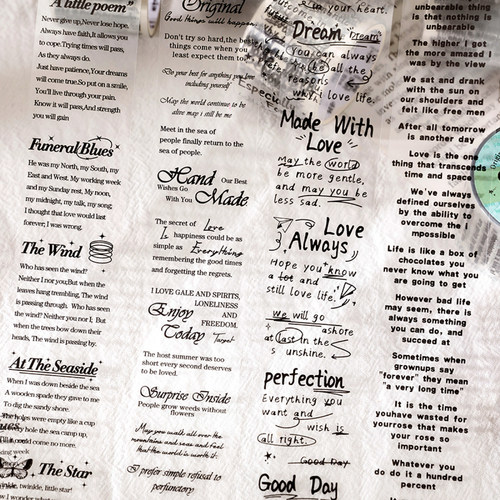 "A little poem"
Never give up,Never lose hope.
Always have faith,It allows you
to cope.Trying times will pass,
As they always do.
Just have patience,Your dreams
will come true.So put on a smile,
You'll live through your pain.
Know it will pass,And strength
you will gain
Funeral Blues
He was my North, my South, my
East and West. My working week
and my Sunday rest, My noon,
my midnight, my talk, my song;
I thought that love would last
forever; I was wrong.
The Wind
Who has seen the wind?
Neither I nor you;But when the
leaves hang trembling, The wind
is passing through. Who has seen
the wind? Neither you nor I; But
when the trees bow down their
heads, The wind is passing by.
At The Seaside
When I was down beside the sea
A wooden spade they gave to me
To dig the sandy shore.
The holes were empty like a cup
every hole the sea camup up,
it could come no more.
The Star
twinkle, little star!
Original
Good things will happen
Don't try so hard,the best
things come when you
least expect them to
Do your best for anything you love
including yourself
May the world continue to be
alive may I still be me
Meet in the sea of
people finally return to the
sea of people.
Hand Our Best
Wishes Go
With You Made
The secret of Love
Is happiness could be as
simple as Everything
remembering the good times
and forgetting the regrets.
I LOVE GALE AND SPIRITS,
LONELINESS
Enjoy AND
FREEDOM.
Today Target
The host summer was too
short every second deserves
to be loved.
Surprise Inside
People grow weeds without
flowers
May you walk all over the
mountains and seas and feel
that the world is worth it.
I prefer simple refusal to
perfunctory.
your heart.
Dream "Dream"
You can always
be all the
reasons
why I love life.
Especia
Made With
Love
May the world
be more gentle,
and may you be
less sad.
Love
Always
Hope you know
a lot and
still love life.
We will go
ashore
at last in the
sunshine.
perfection
Everything you
want and
wish is
all right.
Good Day
Good Day
unbearable thing
is that nothing is
unbearable
The higher I got
the more amazed I
was by the view
We sat and drank
with the sun on
our shoulders and
felt like free men
After all tomorrow
is another day
Love is the one
thing that transcends
time and space
We've always
defined ourselves
by the ability to
overcome the I
mpossible
Life is like a box of
chocolates you
never know what you
are going to get
However bad life
may seem, there is
always something
you can do, and
succeed at
Sometimes when
grownups say
"forever" they mean
"a very long time"
It is the time
youhave wasted for
yourrose that makes
your rose so
important
Whatever you
do do it a hundred
percent